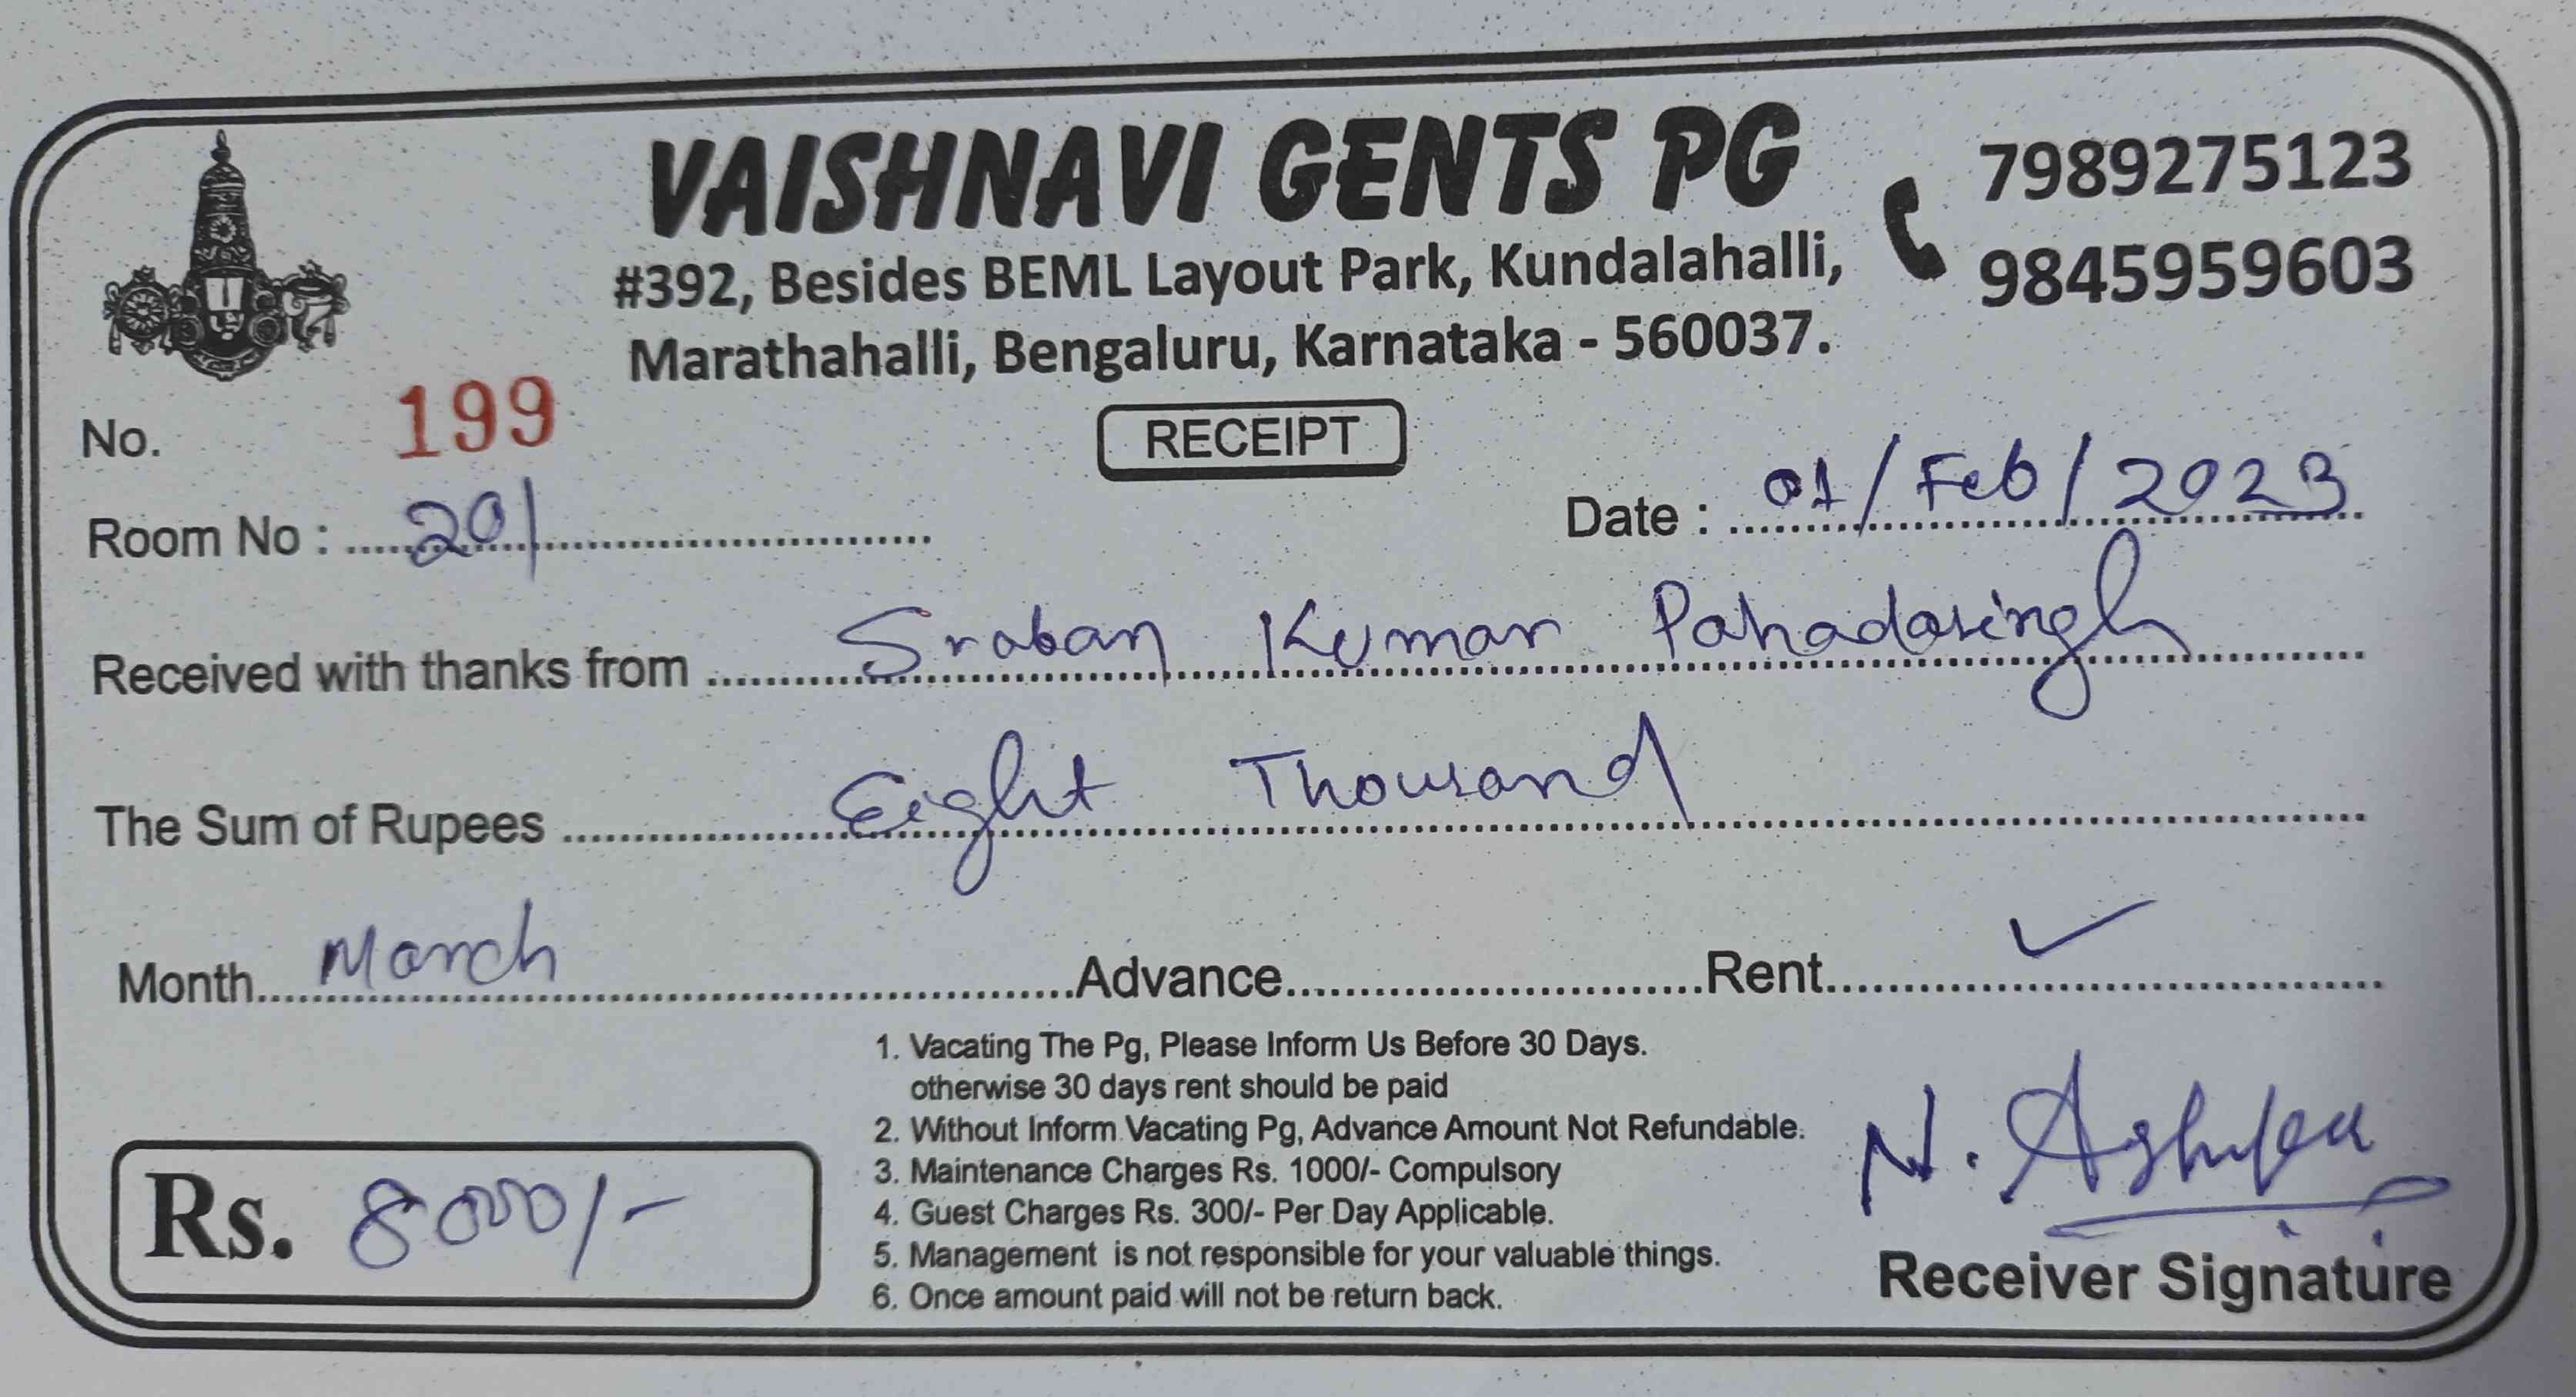 VAISHNAVI GENTS PG
7989275123
9845959603
#392, Besides BEML Layout Park, Kundalahalli,
Marathahalli, Bengaluru, Karnataka - 560037.
No. 199
RECEIPT
Room No : 201
Date : 01/Feb/2023
Received with thanks from Sraban Kumar Pahadasingh
The Sum of Rupees Eight Thousand
Month March Advance Rent ✓
1. Vacating The Pg, Please Inform Us Before 30 Days.
otherwise 30 days rent should be paid
2. Without Inform Vacating Pg, Advance Amount Not Refundable.
3. Maintenance Charges Rs. 1000/- Compulsory
4. Guest Charges Rs. 300/- Per Day Applicable.
5. Management is not responsible for your valuable things.
6. Once amount paid will not be return back.
Rs. 8000/-
N.
Receiver Signature